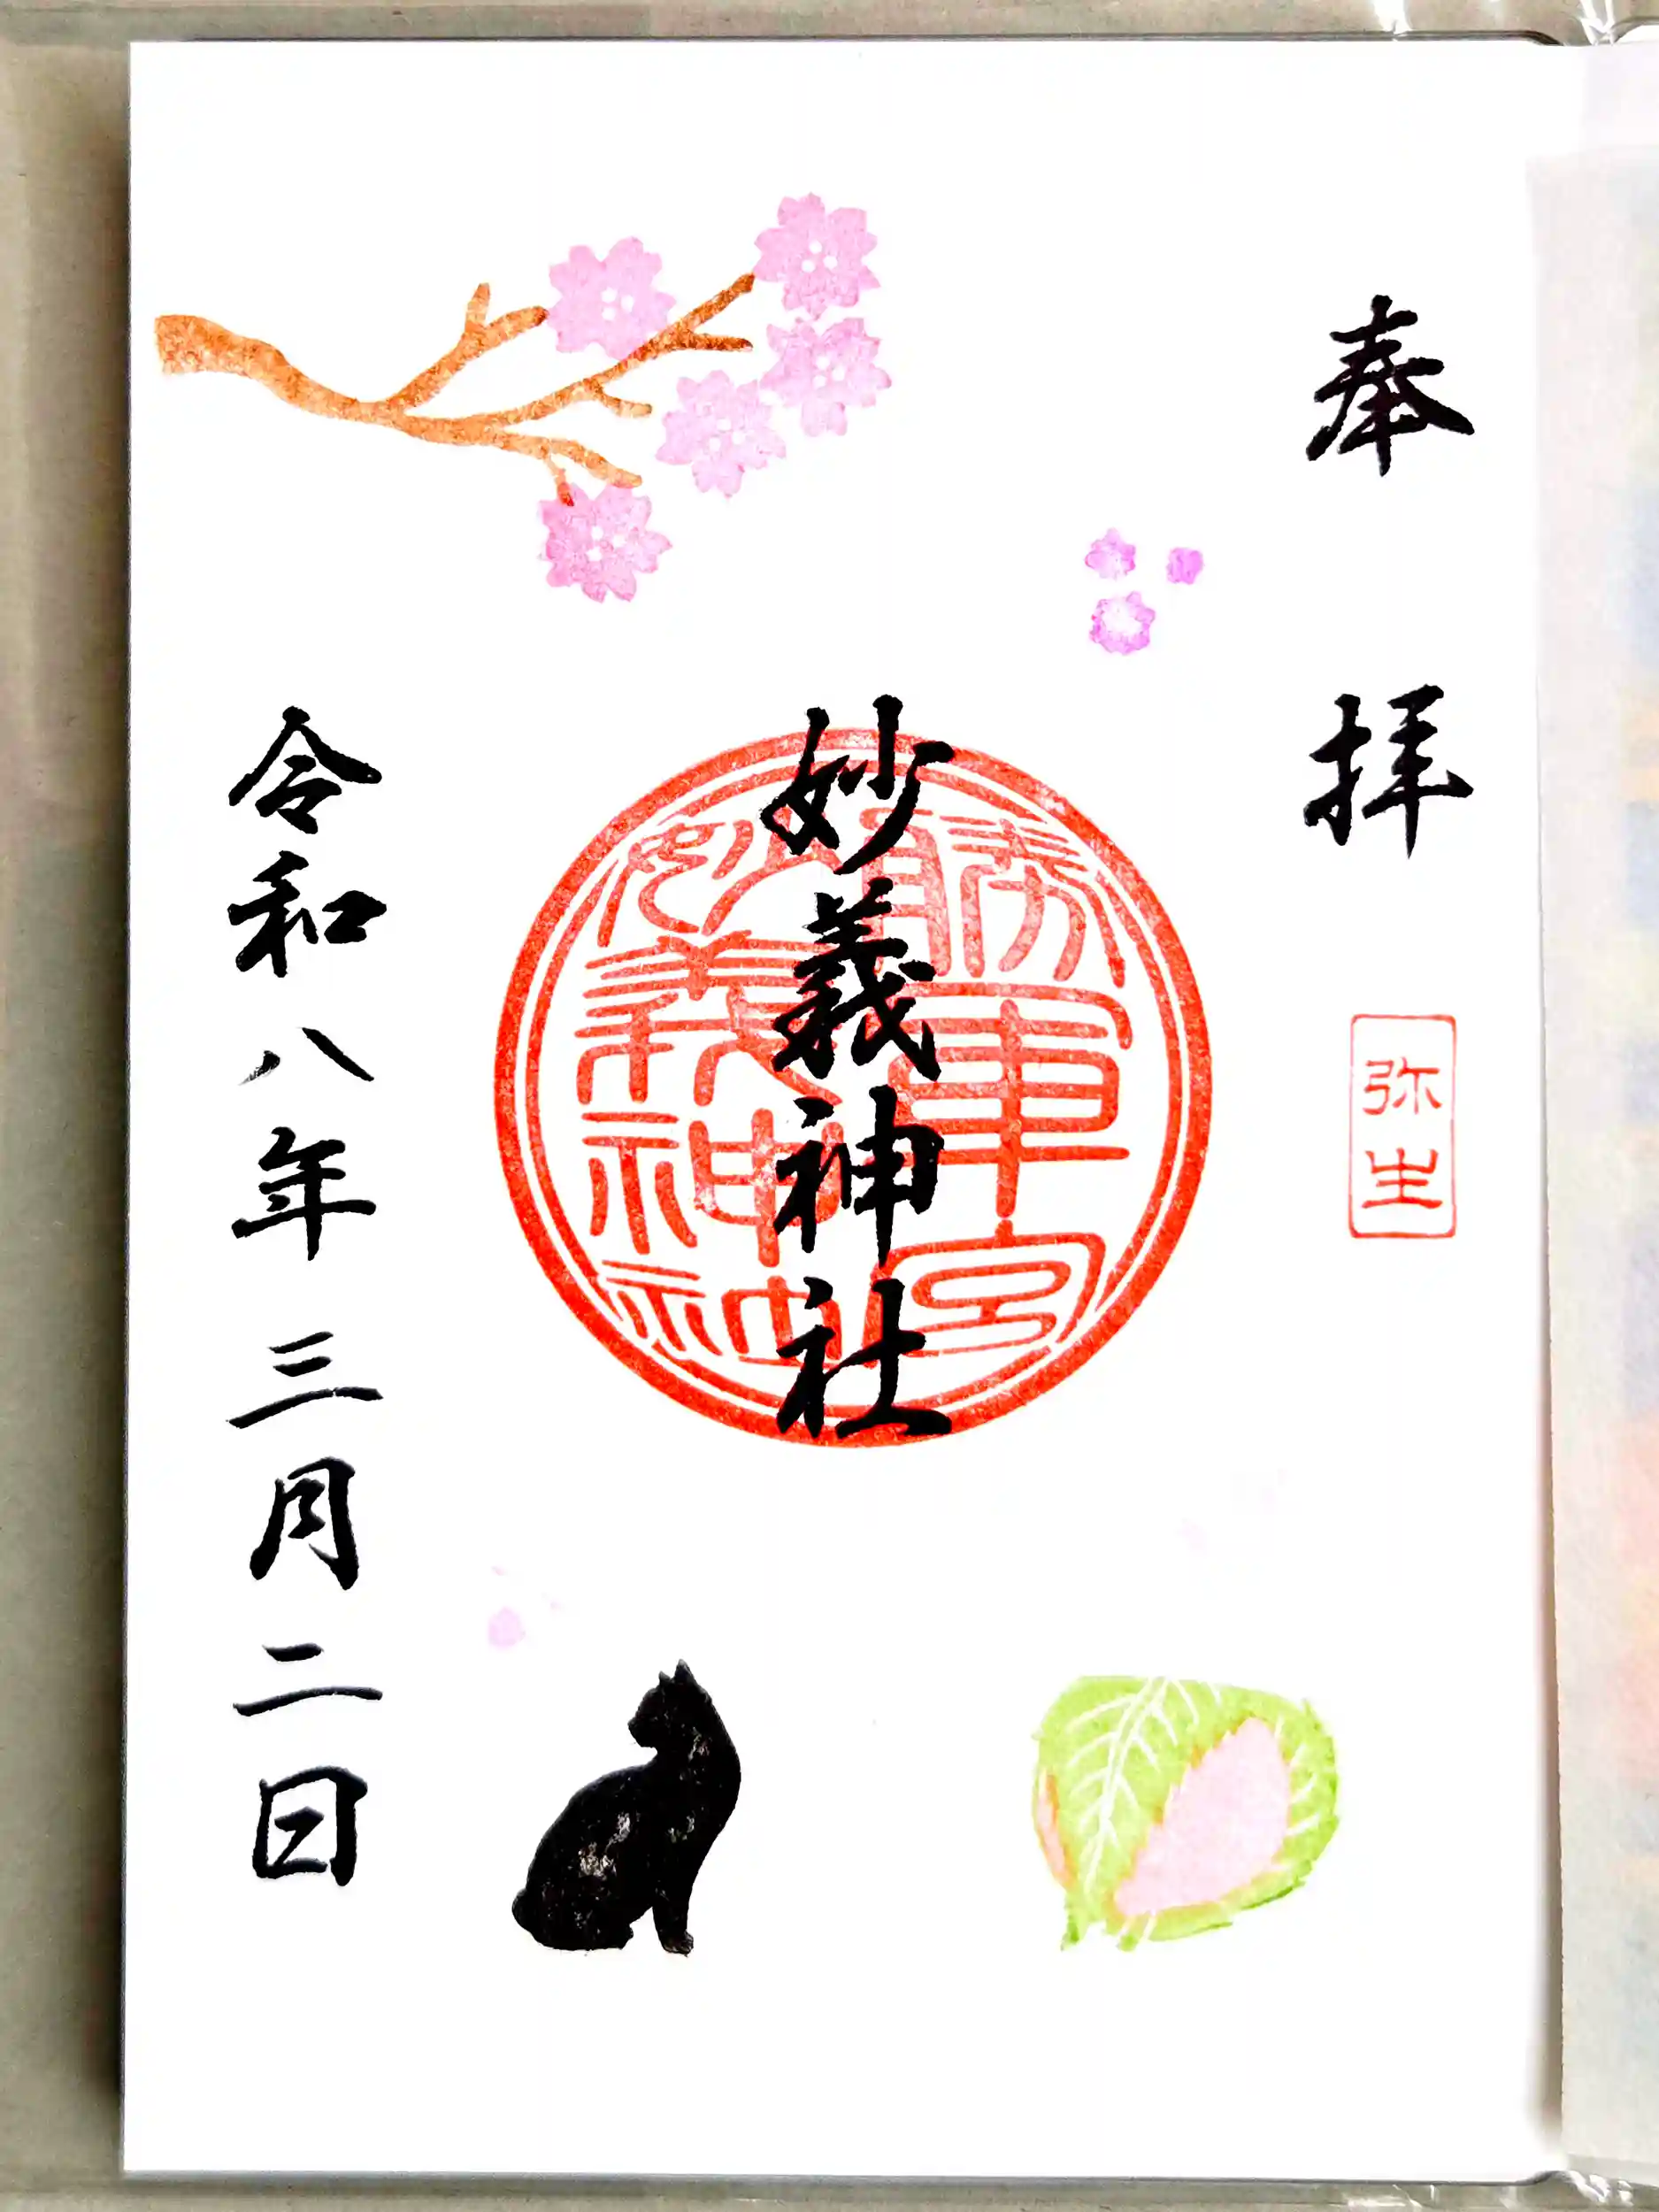 奉拝
弥生
妙義神社
勝軍宮
妙義神社
令和八年三月二日